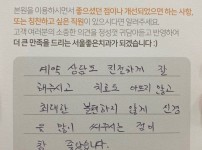 본원을 이용하시면서 좋으셨던 점이나 개선되었으면 하는 사항,
또는 칭찬하고 싶은 직원이 있으시다면 알려주세요.
고객 여러분의 소중한 의견을 정성껏 귀담아듣고 반영하여
더 큰 만족을 드리는 서울좋은치과가 되겠습니다 :)
예약 상담도 친절하게 잘
해주시고 치료도 아프지 않고
최대한 불편하지 않게 신경
을 많이 써주시는 점이
참 좋았습니다.